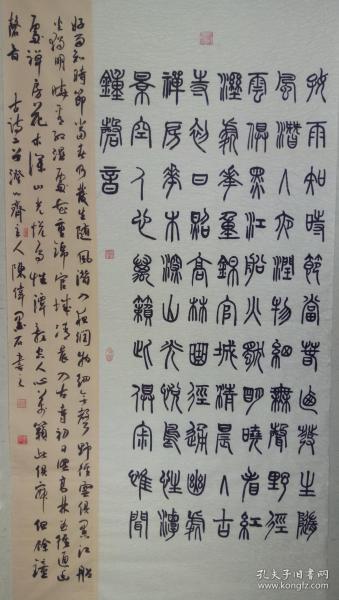 好雨知時節當春乃發生隨
風潛入夜潤物細無聲野徑
雲俱黑江船火獨明曉看紅
濕處花重錦官城清晨入古
寺初日照高林曲徑通幽處
禪房花木深山光悅鳥性潭
景空人心萬籟此俱寂惟聞
鐘磬音
好雨知時節當春乃發生隨風潛入夜潤物細無聲野徑雲俱黑江船
火獨明曉看紅濕處花重錦官城清晨入古寺初日照高林曲徑通幽
處禪房花木深山光悅鳥性潭影空人心萬籟此俱寂但餘鐘
磬音 古詩二首 齋主人陳偉石書之
孔夫子旧书网